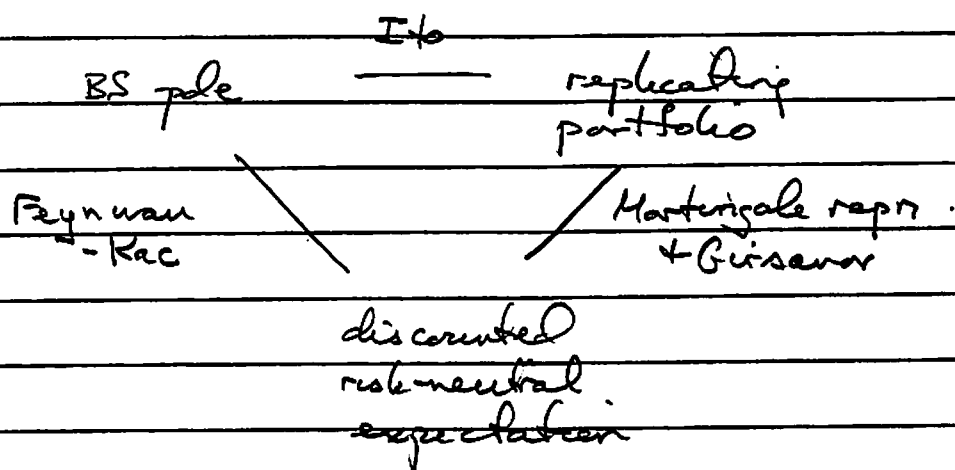 Ito
BS pde replicating
portfolio
Feynman Martingale repn.
-Kac + Girsanov
discounted
risk-neutral
expectation